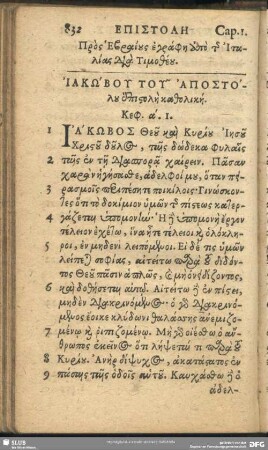 832 ΕΠΙΣΤΟΛΗ Cap.1.
Πρὸς Ἑβραίους ἐγράφη ἀπὸ τῆς Ἰτα-
λίας διὰ Τιμοθέου.
ἸΑΚΩΒΟΥ ΤΟΥ ἈΠΟΣΤΌ-
λου ἐπιστολὴ καθολική.
Κεφ. α. 1.
1 ἸΆΚΩΒΟΣ Θεοῦ καὶ Κυρίου Ἰησοῦ
Χριστοῦ δοῦλος, ταῖς δώδεκα φυλαῖς
2 ταῖς ἐν τῇ διασπορᾷ χαίρειν. Πᾶσαν
χαρὰν ἡγήσασθε, ἀδελφοί μου, ὅταν πει-
3 ρασμοῖς περιπέσητε ποικίλοις· Γινώσκον-
τες ὅτι τὸ δοκίμιον ὑμῶν τῆς πίστεως κατερ-
4 γάζεται ὑπομονήν· Ἡ δὲ ὑπομονὴ ἔργον
τέλειον ἐχέτω, ἵνα ἦτε τέλειοι καὶ ὁλόκλη-
5 ροι, ἐν μηδενὶ λειπόμενοι. Εἰ δέ τις ὑμῶν
λείπεται σοφίας, αἰτείτω παρὰ τοῦ διδόν-
τος Θεοῦ πᾶσιν ἁπλῶς, καὶ μὴ ὀνειδίζοντος,
6 καὶ δοθήσεται αὐτῷ. Αἰτείτω δὲ ἐν πίστει,
μηδὲν διακρινόμενος· ὁ γὰρ διακρινό-
μενος ἔοικε κλύδωνι θαλάσσης ἀνεμιζο-
7 μένῳ καὶ ῥιπιζομένῳ. Μὴ γὰρ οἰέσθω ὁ ἄν-
θρωπος ἐκεῖνος ὅτι λήψεταί τι παρὰ τοῦ
8 Κυρίου. Ἀνὴρ δίψυχος, ἀκατάστατος ἐν
9 πάσαις ταῖς ὁδοῖς αὐτοῦ. Καυχάσθω δὲ ὁ
ἀδελ-
SLUB
DFG